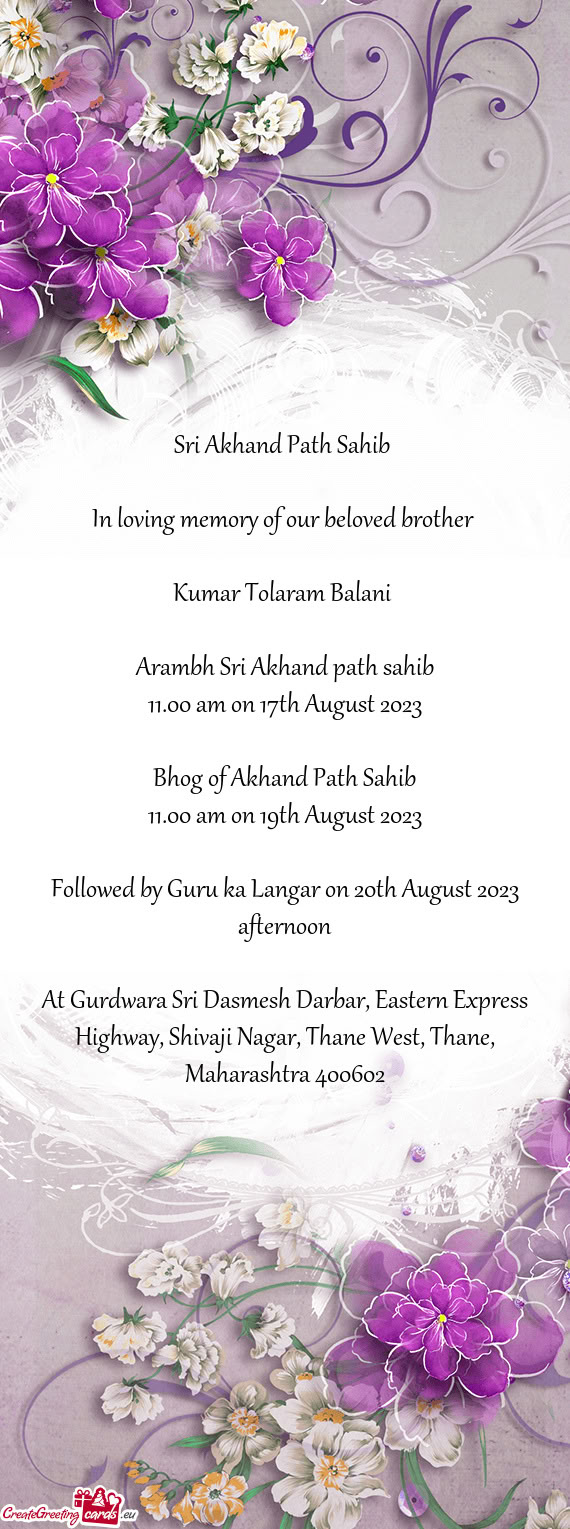 Sri Akhand Path Sahib
In loving memory of our beloved brother
Kumar Tolaram Balani
Arambh Sri Akhand path sahib
11.00 am on 17th August 2023
Bhog of Akhand Path Sahib
11.00 am on 19th August 2023
Followed by Guru ka Langar on 20th August 2023
afternoon
At Gurdwara Sri Dasmesh Darbar, Eastern Express
Highway, Shivaji Nagar, Thane West, Thane,
Maharashtra 400602
CreateGreeting cards .eu